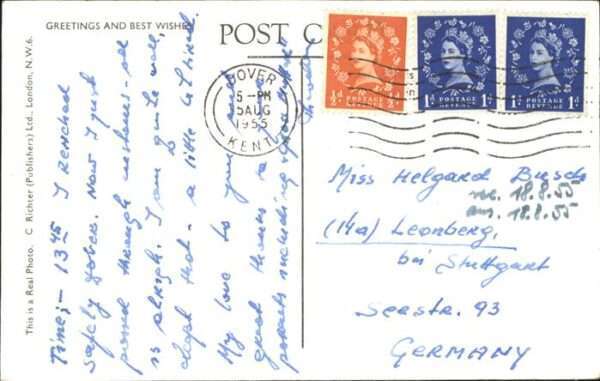 GREETINGS AND BEST WISHES
POST C
This is a Real Photo. C Richter (Publishers) Ltd., London, N.W.6.
DOVER
5-PM
5 AUG
1955
KENT
½d POSTAGE REVENUE ½d
1d POSTAGE REVENUE 1d
1d POSTAGE REVENUE 1d
Time;- 13 45 I reached
safely Dover. Now I just
passed through customs - all
is alright. I am quite well,
that - a little bit tired.
My love to you and
great thanks to
including
Miss Helgard Busch
18.8.55
18.8.55
(14a) Leonberg,
bei Stuttgart
Seestr. 93
GERMANY